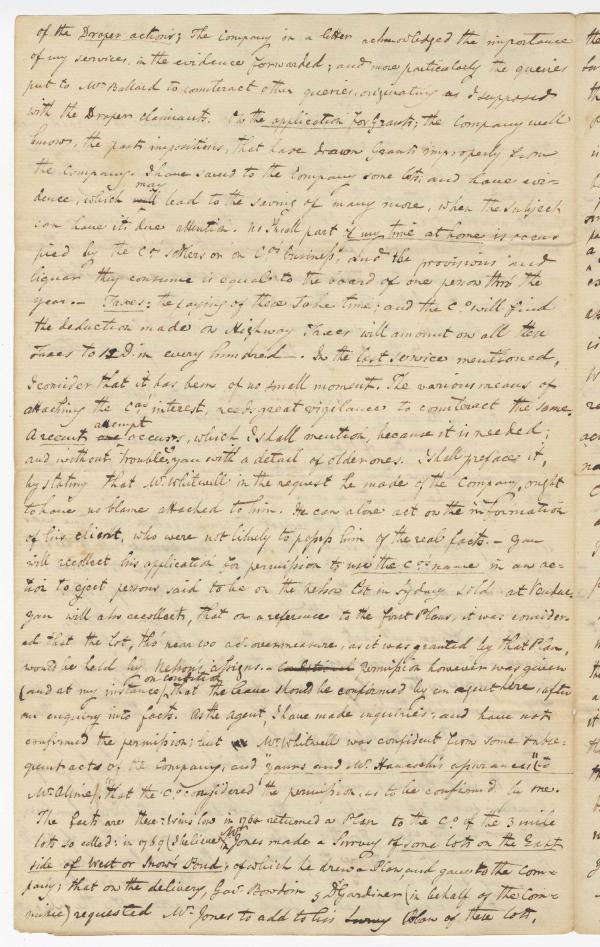 of the Draper actions; The Company in a letter acknowledged the importance
of my services, in the evidence forwarded; and more particularly the queries
put to Mr Ballard to counteract other queries, originating as I supposed
with the Draper claimants. On the application for Grants; the Company well
know, the past impositions, that have drawn Grants improperly from
the Company. I have saved to the Company some lots, and have evi-
dence, which may lead to the saving of many more, when the subject
can have its due attention. No small part of my time at home is occu-
pied by the Co. settlers or on Co.s business, and the provisions and
liquor they consume is equal to the board of one person thro' the
year.- Taxes: the paying of these take time; and the Co. will find
the deduction made on Highway Taxes will amount on all these
Taxes to 12 D. in every hundred-. In the last service mentioned,
I consider that it has been of no small moment. The various means of
attacking the Co.s interest, needs great vigilance to counteract the same.
A recent attempt occurs, which I shall mention, because it is needed;
and without troubling you with a detail of older ones. I shall preface it,
by stating that Mr Whitwell in the request he made of the Company, ought
to have no blame attached to him. He can alone act on the information
of his client, who were not likely to possess him of the real facts.- You
will recollect his application for permission to use the Co.s name in an ac-
tion to eject persons said to be on the Nelson lot in Sydney sold at Vendue.
You will also recollect, that on a reference to the first Plans, it was consider-
ed that the lot, tho' near 100 as. overmeasure, as it was granted by that Plan,
would be held by Nelson's assigns.- Permission however was given
(and at my instance) on condition that the leave should be confirmed by an agent here, after
an enquiry into facts. As the agent I have made inquiries; and have not
confirmed the permission; but Mr Whitwell was confident from some subse-
quent acts of the Company, and "yours and Mr Hancock's assurances" (to
Mr Alline), that the Co. considered the permission, as to be confirmed by me.
The facts are these: Winslow in 1760 returned a Plan to the Co. of the 3 mile
lots so called: in 1769 (I believe) Mr Jones made a Survey of some lots on the East
side of West or Snow's Pond; of which he drew a Plan and gave to the Com-
pany; that on the delivery, Gov. Bowdoin & D Gardiner (in behalf of the Com-
mittee) requested Mr Jones to add to his Plan of these lots,